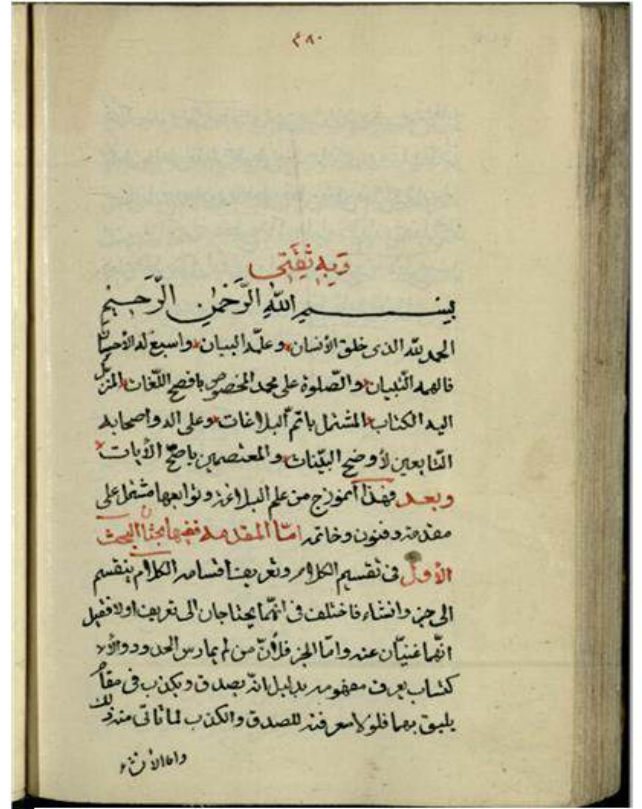 ٤٨٠
وبه ثقتي
بسم الله الرَّحْمٰن الرَّحيم
الحمد لله الذى خلق الأنسان وعلّمه البيان واسبغ له الأحسان
فالهمه التّبيان والصّلوة على محمد المخصوص بافصح اللّغات المنزل
اليه الكتاب المشتمل باتم البلاغات وعلى اله واصحابه
التّابعين لأوضح البيّنات والمعتصمين باصحّ الأيات
وبعد فهذا أنموذج من علم البلاغة وتوابعها مشتمل على
مقدمة وفنون وخاتمه امّا المقدمه ففيها ابحاث البحث
الأول فى تقسيم الكلام وتعريف اقسامه الكلام ينقسم
الى خبر وانشاء فاختلف فى انّهما يحتاجان الى تعريف اولا فقيل
انّهما غنيّان عنه وامّا الخبر فلأنّ من لم يمارس الحدود والأ
كتساب يعرف مفهومه بدليل انّه يصدق ويكذب فى مقام
يليق بهما فلولا معرفته للصدق والكذب لما تاتى منه ذلك
واما الأنشاء